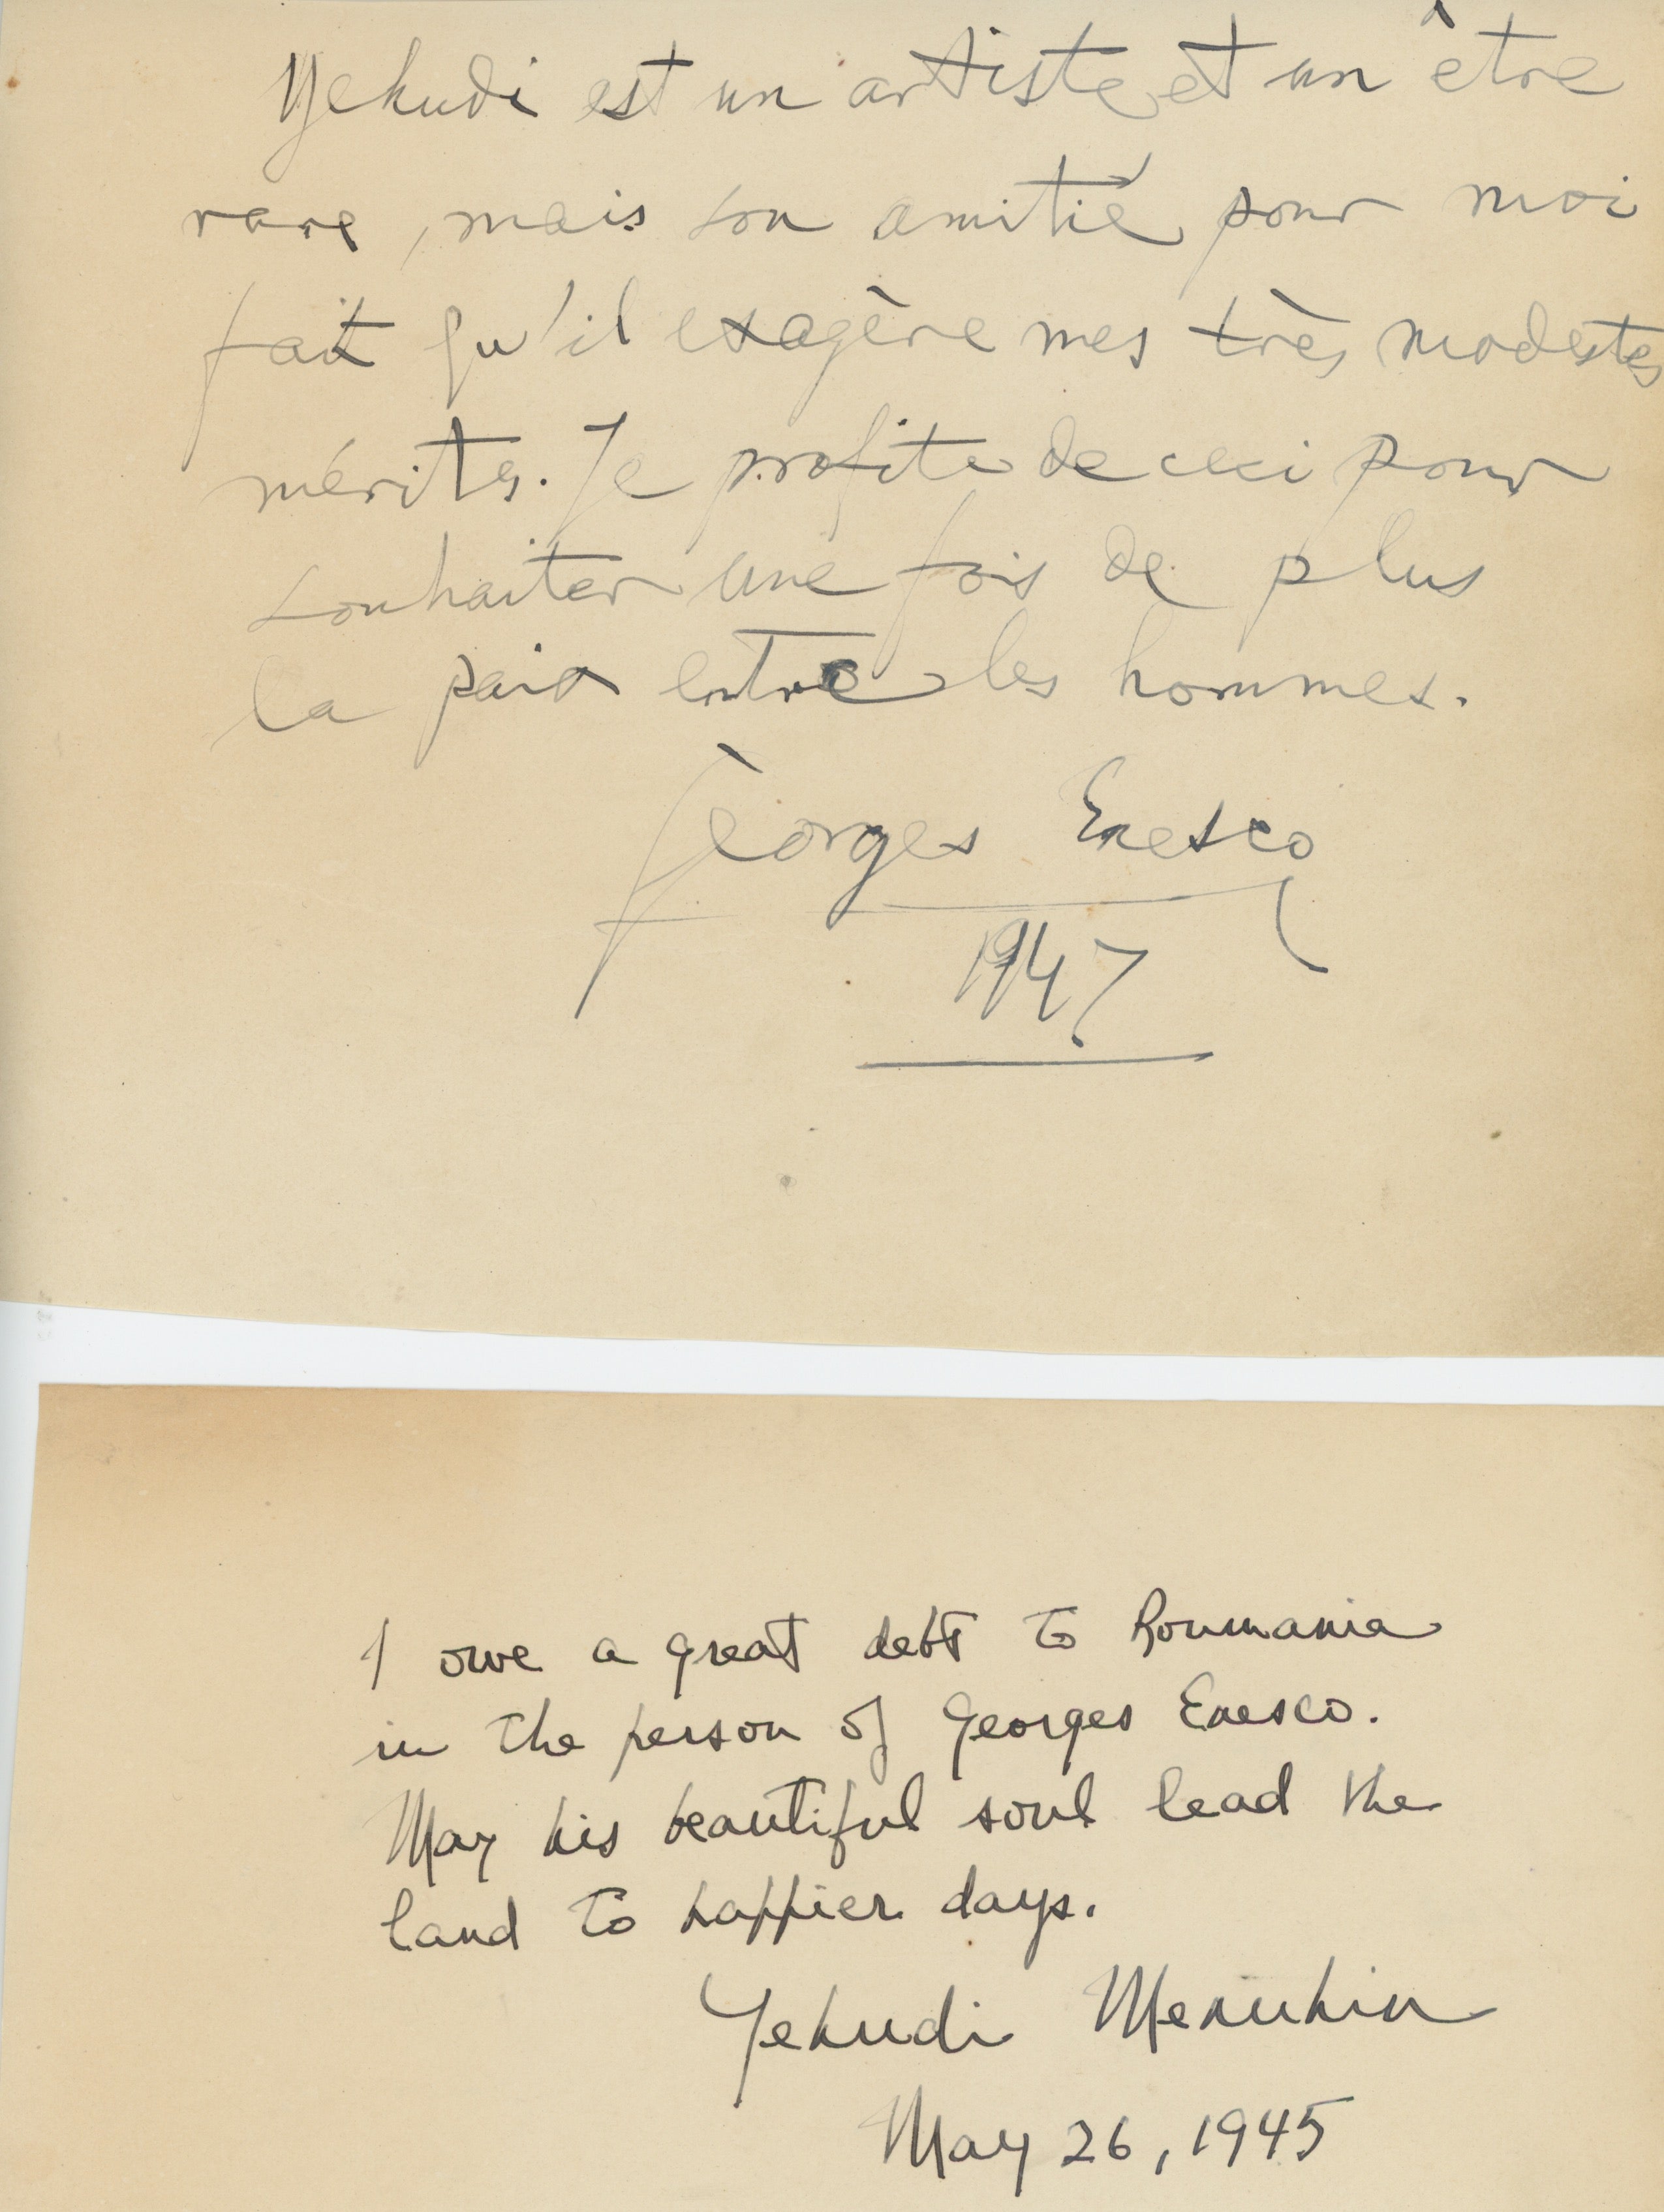 Yehudi est un artiste et un être
rare, mais son amitié pour moi
fait qu'il exagère mes très modestes
mérites. Je profite de ceci pour
souhaiter une fois de plus
la paix entre les hommes.
Georges Enesco
1947
I owe a great debt to Roumania
in the person of Georges Enesco.
May his beautiful soul lead the
land to happier days.
Yehudi Menuhin
May 26, 1945